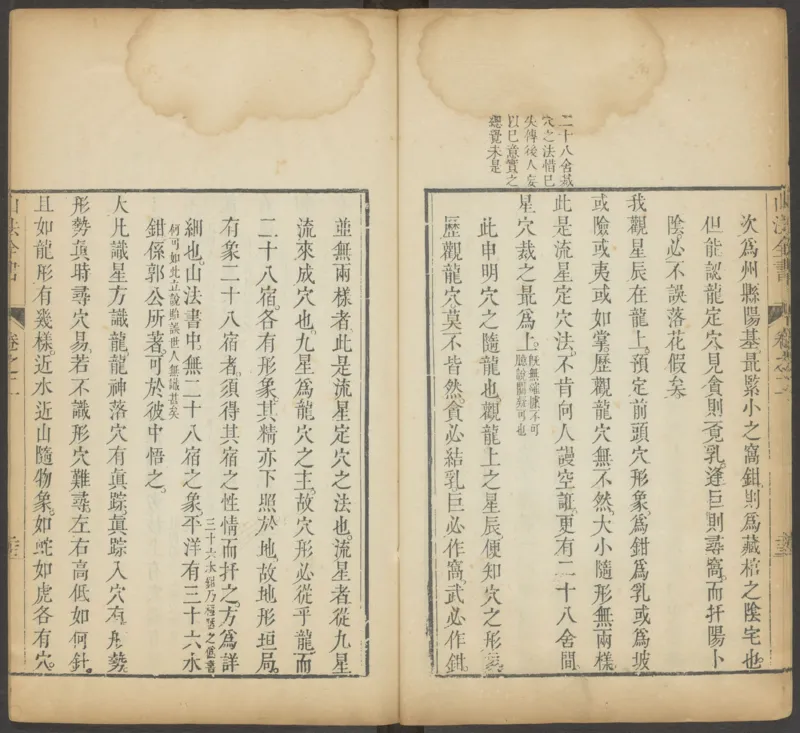 二十八舍裁
穴之法惜已
失傳後人妄
以已意實之
總覺未是
次爲州縣陽基最緊小之窩鉗則爲藏棺之陰宅也
但能認龍定穴見貪則覓乳逢巨則尋窩而扦陽卜
陰必不誤落花假矣
我觀星辰在龍上預定前頭穴形象爲鉗爲乳或爲坡
或險或夷或如掌歷觀龍穴無不然大小隨形無兩樣
此是流星定穴法不肯向人謾空誑更有二十八舍間
星穴裁之最爲上既無確據不可
臆說闕疑可也
此申明穴之隨龍也觀龍上之星辰便知穴之形
歷觀龍穴莫不皆然貪必結乳巨必作窩武必作鉗
山法全書
卷之二
並無兩樣者此是流星定穴之法也流星者從九星
流來成穴也九星爲龍穴之主故穴形必從乎龍而
二十八宿各有形象其精亦下照於地故地形垣局
有象二十八宿者須得其宿之性情而扦之方爲詳
細也山法書中無二十八宿之象平洋有三十六水
三十六水鉗乃
之僞書
何可如此立說貽誤世人無識甚矣
鉗係郭公所著可於彼中悟之
大凡識星方識龍龍神落穴有眞踪眞踪入穴有形勢
形勢眞時尋穴易若不識形穴難尋左右高低如何針
且如龍形有幾樣近水近山隨物象如蛇如虎各有穴
山法全書
卷之二